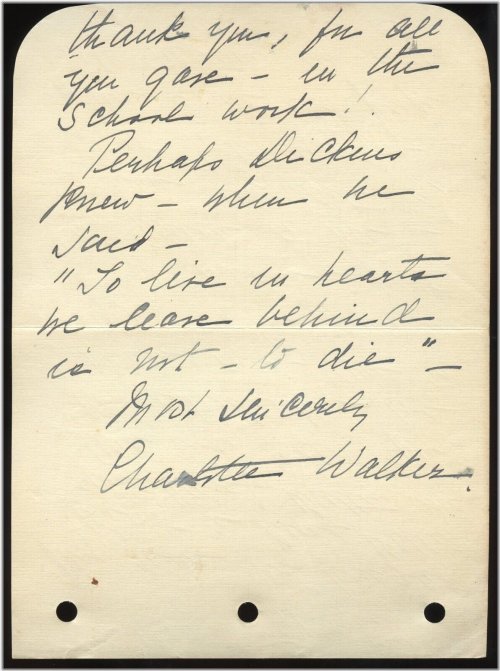 thank you, for all
you gave - in the
School work!
Perhaps Dickens
knew - when he
said -
"To live in hearts
we leave behind
is not - to die" -
Most sincerely
Charlotte Walker.